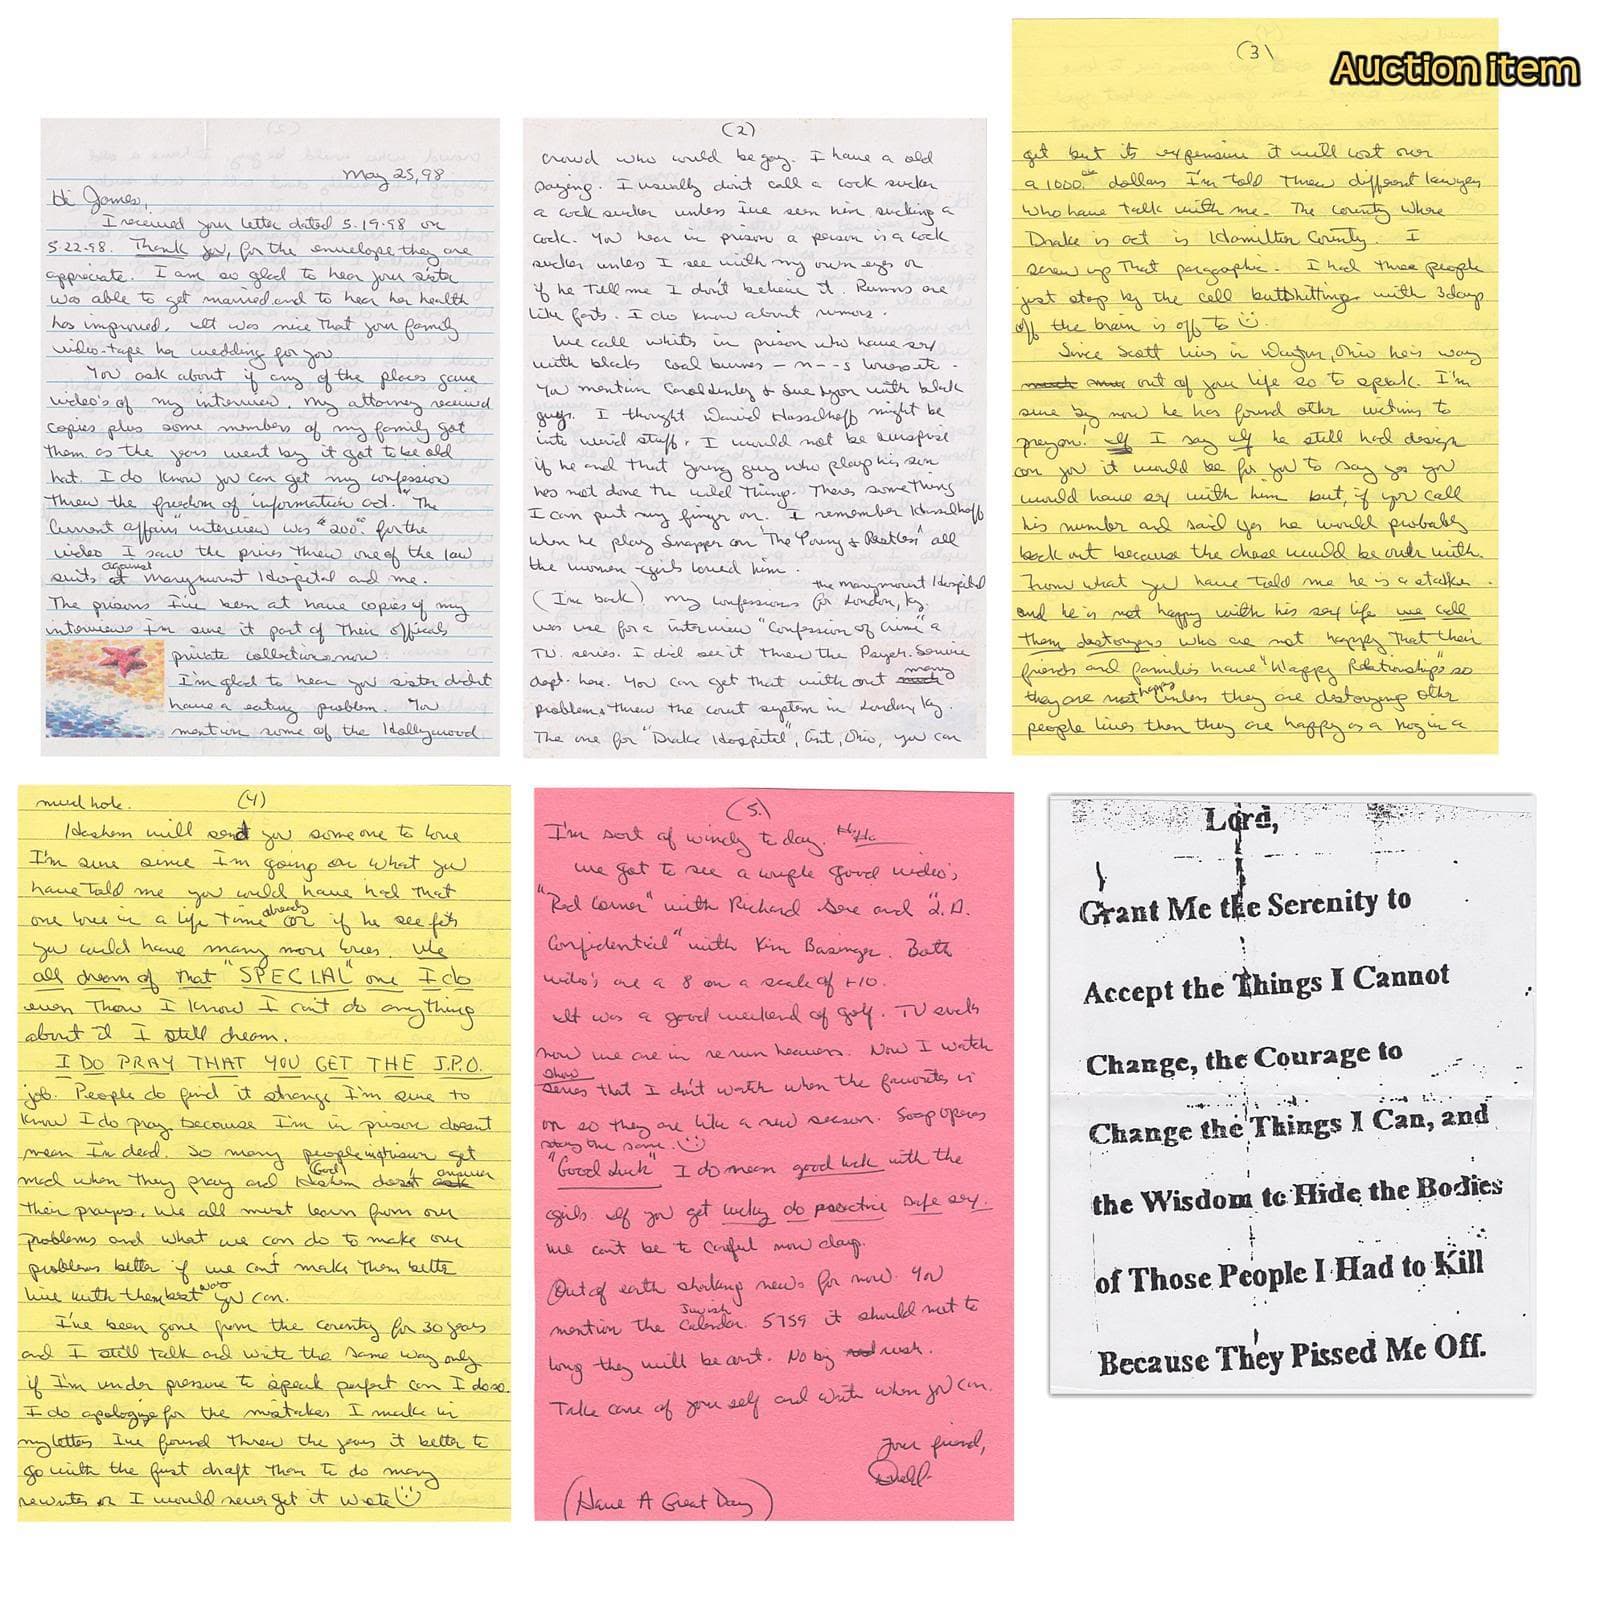 Auction item
May 25, 98
Hi James,
I received your letter dated 5-19-98 on
5-22-98. Thank you, for the envelope they are
appreciate. I am so glad to hear your sister
was able to get married and to hear her health
has improved. It was nice that your family
video-tape her wedding for you.
You ask about if any of the places gave
video's of my interview. My attorney received
copies plus some members of my family got
them as the years went by it got to be old
hat. I do know you can get my confession
threw the freedom of information act. "The
Current affairs" interview was "200.00 for the
video I saw the prices threw one of the law
suits against Marymount Hospital and me.
The prisons I've been at have copies of my
interviews I'm sure it part of their officals
private collections now.
I'm glad to hear you sister didn't
have a eating problem. You
mention some of the Hollywood
(2)
crowd who would be gay. I have a old
saying. I usually don't call a cock sucker
a cock sucker unless I've seen him sucking a
cock. You hear in prison a person is a cock
sucker unless I see with my own eyes or
if he tell me I don't believe it. Rumors are
like farts. I do know about rumors.
We call whites in prison who have sex
with blacks coal burners - n--s lovers etc.
You mention Carol & Sue Lyon with black
guys. I thought David Hasselhoff might be
into weird stuff. I would not be surprise
if he and that young guy who plays his son
has not done the wild thing. Theres something
I can put my finger on. I remember Hasselhoff
when he play Snapper on "The Young & Restless" all
the women-girls loved him.
(I'm back) My confessions for the Marymount Hospital London, Ky.
was use for a interview "Confession of Crime" a
TV. series. I did see it threw the Psyc. Service
dept. here. You can get that with out many
problems threw the court system in London, Ky.
The one for "Drake Hospital", Cint, Ohio, you can
(3)
get but its expensive it will cost over
a 1000.00 dollars I'm told threw different lawyers
who have talk with me. The county where
Drake is at is Hamilton County. I
screw up that paragraph. I had three people
just stop by the cell buttshitting with 3 days
off the brain is off to
Since Scott lives in Dayton, Ohio he's way
out of your life so to speak. I'm
sure by now he has found other victims to
prey on! If I say if he still had design
on you it would be for you to say yes you
would have sex with him but, if you call
his number and said yes he would probably
back out because the chase would be over with.
From what you have told me he is a stalker.
and he is not happy with his sex life we call
them destroyers who are not happy that their
friends and families have "Happy Relationships" so
they are not happy unless they are destroying other
people lives then they are happy as a hog in a
(4)
mud hole.
Hashem will send you someone to love
I'm sure since I'm going on what you
have told me you would have had that
one love in a life time already or if he see fits
you could have many more loves. We
all dream of that "SPECIAL" one I do
even thow I know I can't do anything
about it I still dream.
I DO PRAY THAT YOU GET THE J.P.O.
job. People do find it strange I'm sure to
know I do pray because I'm in prison doesnt
mean I'm dead. So many people in prison get
mad when they pray and Hashem (God) doesn't answer
their prayers. We all must learn from our
problems and what we can do to make our
problems better if we can't make them better
live with them best way you can.
I've been gone from the country for 30 years
and I still talk and write the same way only
if I'm under pressure to speak perfect can I do so.
I do apologize for the mistakes I make in
my letters I've found threw the years it better to
go with the first draft then to do many
rewrites or I would never get it wrote
(5.)
I'm sort of windy to day. Ha, Ha
We got to see a couple good video's
"Red Corner" with Richard Gere and "L.A.
Confidential" with Kim Basinger. Both
video's are a 8 on a scale of 1-10.
It was a good weekend of golf. TV sucks
now we are in re run heavens. Now I watch
show series that I didn't watch when the favorites is
on so they are like a new season. Soap operas
stay the same.
"Good Luck" I do mean good luck with the
girls. If you get lucky do practice safe sex.
We can't be to careful now days.
Out of earth shaking news for now. You
mention the Jewish Calendar. 5759 it should not to
long they will be out. No big rush.
Take care of your self and write when you can.
Your friend,
Donald
(Have A Great Day)
Lord,
Grant Me the Serenity to
Accept the Things I Cannot
Change, the Courage to
Change the Things I Can, and
the Wisdom to Hide the Bodies
of Those People I Had to Kill
Because They Pissed Me Off.